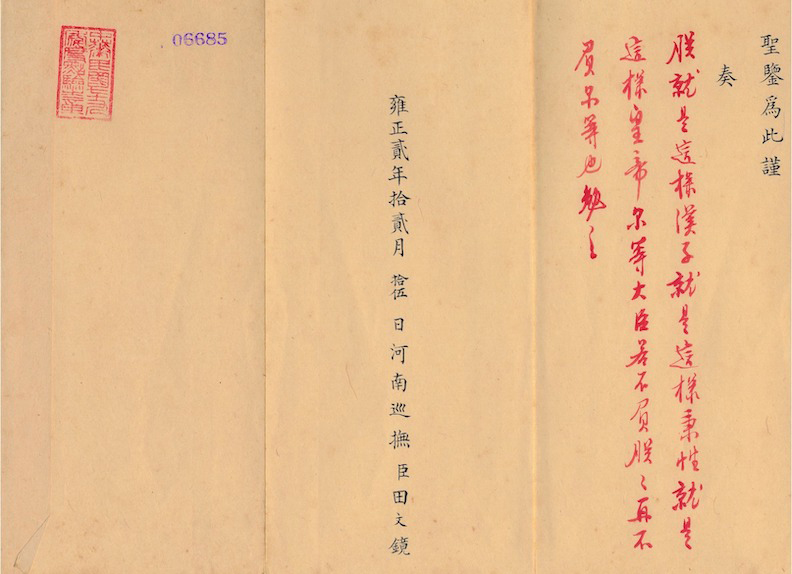 聖鑒為此謹
奏
朕就是這樣漢子就是這樣秉性就是
這樣皇帝尔等大臣若不負朕〻再不
負尔等也勉之
雍正貳年拾貳月拾伍日河南巡撫臣田文鏡
06685